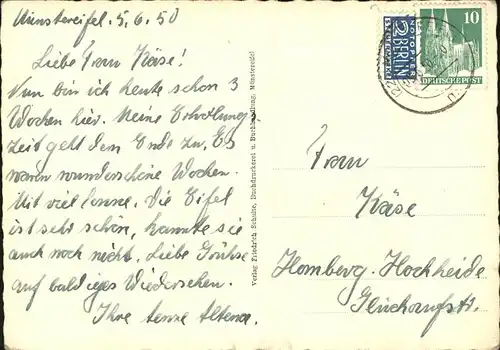 Münstereifel. 5.6.50
Liebe Frau Käse!
Nun bin ich heute schon 3
Wochen hier. Meine Erholungs
zeit geht dem Ende zu. Es
waren wunderschöne Wochen.
Mit viel Sonne. Die Eifel
ist sehr schön, kannte sie
auch noch nicht. Liebe Grüße
auf baldiges Wiedersehen.
Ihre Altena.
Verlag Friedrich Schulte, Buchdruckerei u. Buchhandlung, Münstereifel
NOTOPFER
2 BERLIN
STEUERMARKE
10
DEUTSCHE POST
Frau
Käse
Homberg-Hochheide
Glückaufstr.